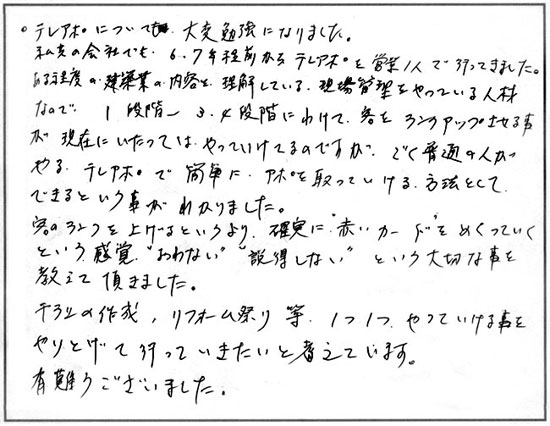 。テレアポについて、大変勉強になりました。
私共の会社でも、6、7年程前からテレアポを営業1人で行ってきました。
ある程度の建築業の内容を理解している、現場管理をやっている人材
なので、1段階〜3、4段階にわけて、客をランクアップさせる事
が現在にいたってはやっていけてるのですが、ごく普通の人が
やる、テレアポで簡単に、アポを取っていける方法として、
できるという事がわかりました。
客のランクを上げるというより、確実に"赤いカード"をめくっていく
という感覚、"おわない""説得しない"という大切な事を
教えて頂きました。
チラシの作成、リフォーム祭り等、1つ1つ、やっていける事を
やりとげて行っていきたいと考えています。
有難うございました。